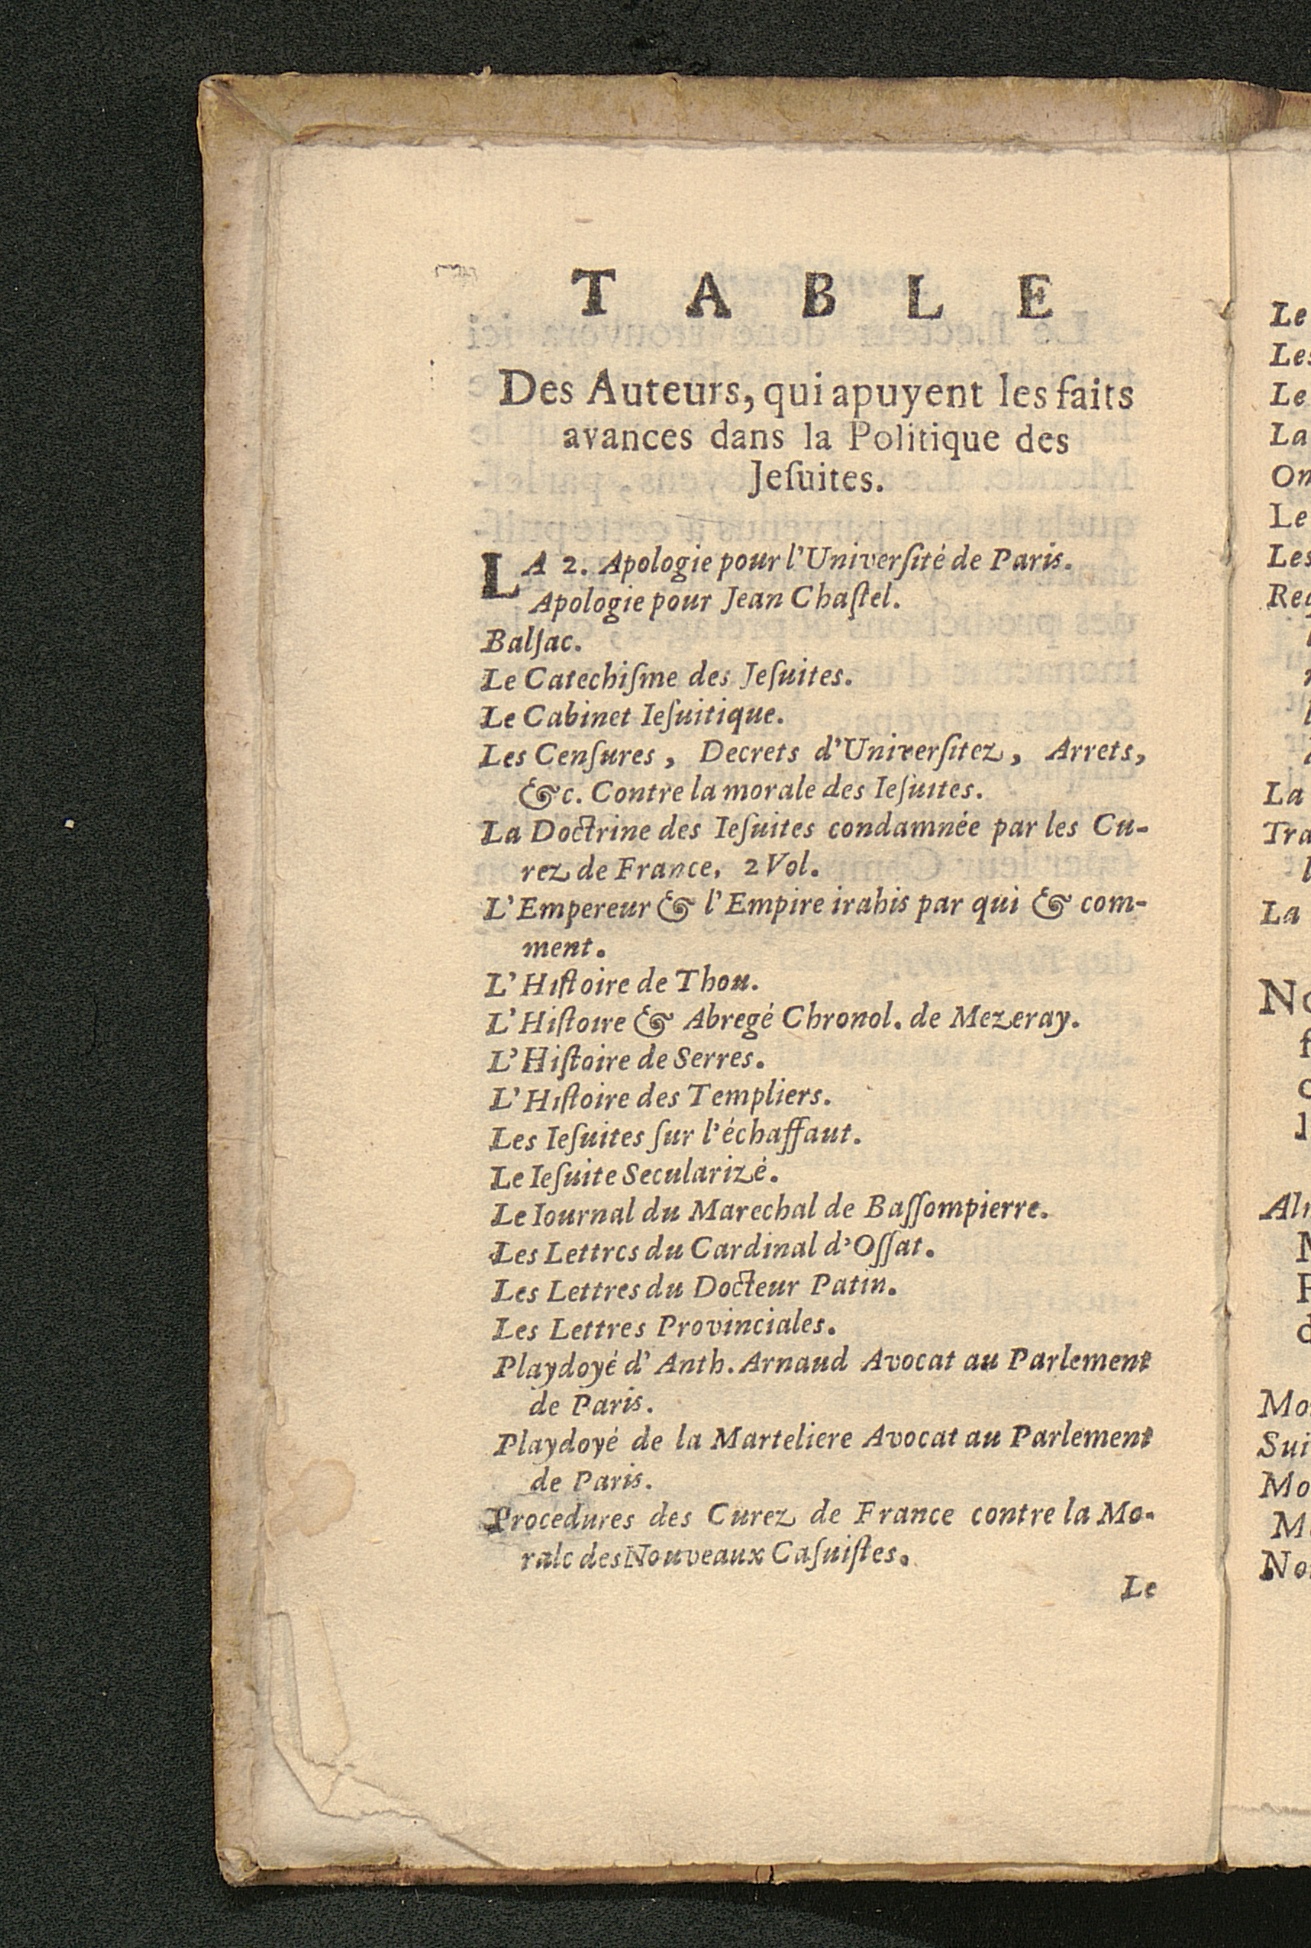 TABLE
Des Auteurs, qui apuyent les faits
avances dans la Politique des
Jeſuites.
LA 2. Apologie pour l'Univerſité de Paris.
Apologie pour Jean Chaſtel.
Balſac.
Le Catechiſme des Jeſuites.
Le Cabinet Ieſuitique.
Les Cenſures, Decrets d'Univerſitez, Arrets,
&c. Contre la morale des Ieſuites.
La Doctrine des Ieſuites condamnée par les Cu-
rez de France, 2 Vol.
L'Empereur & l'Empire irahis par qui & com-
ment.
L'Hiſtoire de Thou.
L'Hiſtoire & Abregé Chronol. de Mezeray.
L'Hiſtoire de Serres.
L'Hiſtoire des Templiers.
Les Ieſuites ſur l'échaffaut.
Le Ieſuite Secularizé.
Le Iournal du Marechal de Baſſompierre.
Les Lettres du Cardinal d'Oſſat.
Les Lettres du Docteur Patin.
Les Lettres Provinciales.
Playdoyé d'Anth. Arnaud Avocat au Parlement
de Paris.
Playdoyé de la Marteliere Avocat au Parlement
de Paris.
Procedures des Curez de France contre la Mo-
rale des Nouveaux Caſuiſtes.
Le
Le
Les
Le
La
On
Le
Les
La
La